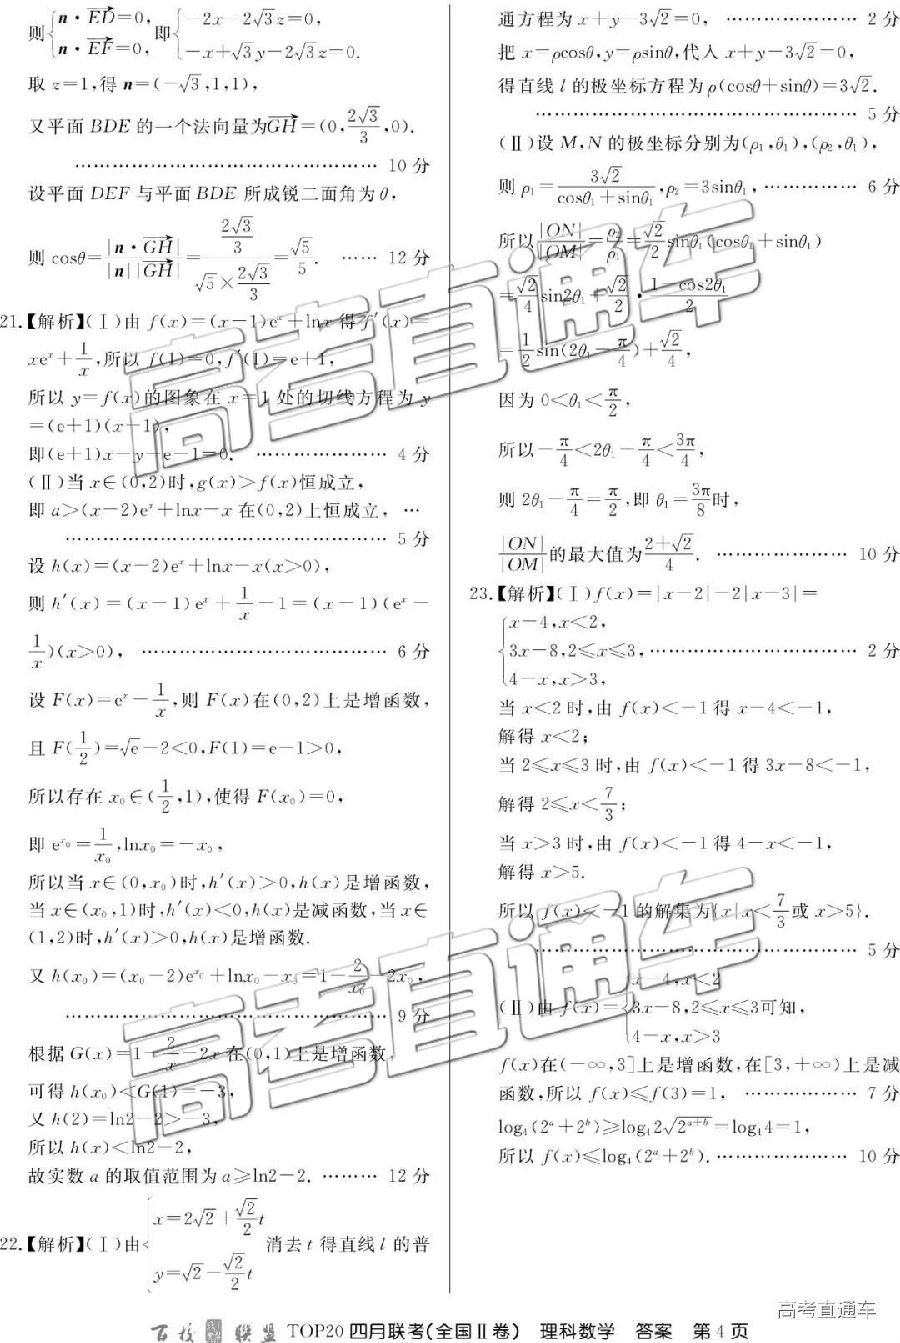 则{n·ED=0, n·EF=0, 即{-2x-2√3z=0, -x+√3y-2√3z=0.
取 z=1,得 n=(-√3,1,1),
又平面 BDE 的一个法向量为GH=(0,2√3/3,0).
………………………………………… 10 分
设平面 DEF 与平面 BDE 所成锐二面角为θ,
则 cosθ=|n·GH|/|n||GH|=(2√3/3)/(√5×2√3/3)=√5/5. …… 12 分
21.【解析】(Ⅰ)由 f(x)=(x-1)eˣ+lnx 得 f′(x)=
xeˣ+1/x,所以 f(1)=0,f′(1)=e+1,
所以 y=f(x)的图象在 x=1 处的切线方程为 y
=(e+1)(x-1),
即(e+1)x-y-e-1=0. ………………… 4 分
(Ⅱ)当 x∈(0,2)时,g(x)>f(x)恒成立,
即 a>(x-2)eˣ+lnx-x 在(0,2)上恒成立, …
………………………………………… 5 分
设 h(x)=(x-2)eˣ+lnx-x(x>0),
则 h′(x)=(x-1)eˣ+1/x-1=(x-1)(eˣ-
1/x)(x>0), ……………………………… 6 分
设 F(x)=eˣ-1/x,则 F(x)在(0,2)上是增函数,
且 F(1/2)=√e-2<0,F(1)=e-1>0,
所以存在 x₀∈(1/2,1),使得 F(x₀)=0,
即 e^x₀=1/x₀,lnx₀=-x₀,
所以当 x∈(0,x₀)时,h′(x)>0,h(x)是增函数,
当 x∈(x₀,1)时,h′(x)<0,h(x)是减函数,当 x∈
(1,2)时,h′(x)>0,h(x)是增函数.
又 h(x₀)=(x₀-2)e^x₀+lnx₀-x₀=1-2/x₀-2x₀,
………………………………………… 9 分
根据 G(x)=1-2/x-2x 在(0,1)上是增函数,
可得 h(x₀)<G(1)=-3,
又 h(2)=ln2-2>-3,
所以 h(x)<ln2-2,
故实数 a 的取值范围为 a≥ln2-2. ……… 12 分
22.【解析】(Ⅰ)由{x=2√2+√2/2 t y=√2-√2/2 t 消去 t 得直线 l 的普
通方程为 x+y-3√2=0, ………………… 2 分
把 x=ρcosθ,y=ρsinθ,代入 x+y-3√2=0,
得直线 l 的极坐标方程为 ρ(cosθ+sinθ)=3√2.
………………………………………… 5 分
(Ⅱ)设 M,N 的极坐标分别为(ρ₁,θ₁),(ρ₂,θ₁),
则 ρ₁=3√2/(cosθ₁+sinθ₁),ρ₂=3sinθ₁, …………… 6 分
所以|ON|/|OM|=ρ₂/ρ₁=√2/2 sinθ₁(cosθ₁+sinθ₁)
=√2/4 sin2θ₁+√2/2·(1-cos2θ₁)/2
=1/2 sin(2θ₁-π/4)+√2/4,
因为 0<θ₁<π/2,
所以-π/4<2θ₁-π/4<3π/4,
则 2θ₁-π/4=π/2,即 θ₁=3π/8时,
|ON|/|OM|的最大值为(2+√2)/4. ………………… 10 分
23.【解析】(Ⅰ)f(x)=|x-2|-2|x-3|=
{x-4,x<2, 3x-8,2≤x≤3, 4-x,x>3, ………………………… 2 分
当 x<2 时,由 f(x)<-1 得 x-4<-1,
解得 x<2;
当 2≤x≤3 时,由 f(x)<-1 得 3x-8<-1,
解得 2≤x<7/3;
当 x>3 时,由 f(x)<-1 得 4-x<-1,
解得 x>5.
所以 f(x)<-1 的解集为{x|x<7/3或 x>5}.
………………………………………… 5 分
(Ⅱ)由 f(x)={x-4,x<2 3x-8,2≤x≤3 4-x,x>3 可知,
f(x)在(-∞,3]上是增函数,在[3,+∞)上是减
函数,所以 f(x)≤f(3)=1. ……………… 7 分
log₄(2ᵃ+2ᵇ)≥log₄2√2ᵃ⁺ᵇ=log₄4=1,
所以 f(x)≤log₄(2ᵃ+2ᵇ). ………………… 10 分
高考直通车
高考直通车
高考直通车
百校联盟 TOP20 四月联考(全国Ⅱ卷) 理科数学 答案 第 4 页